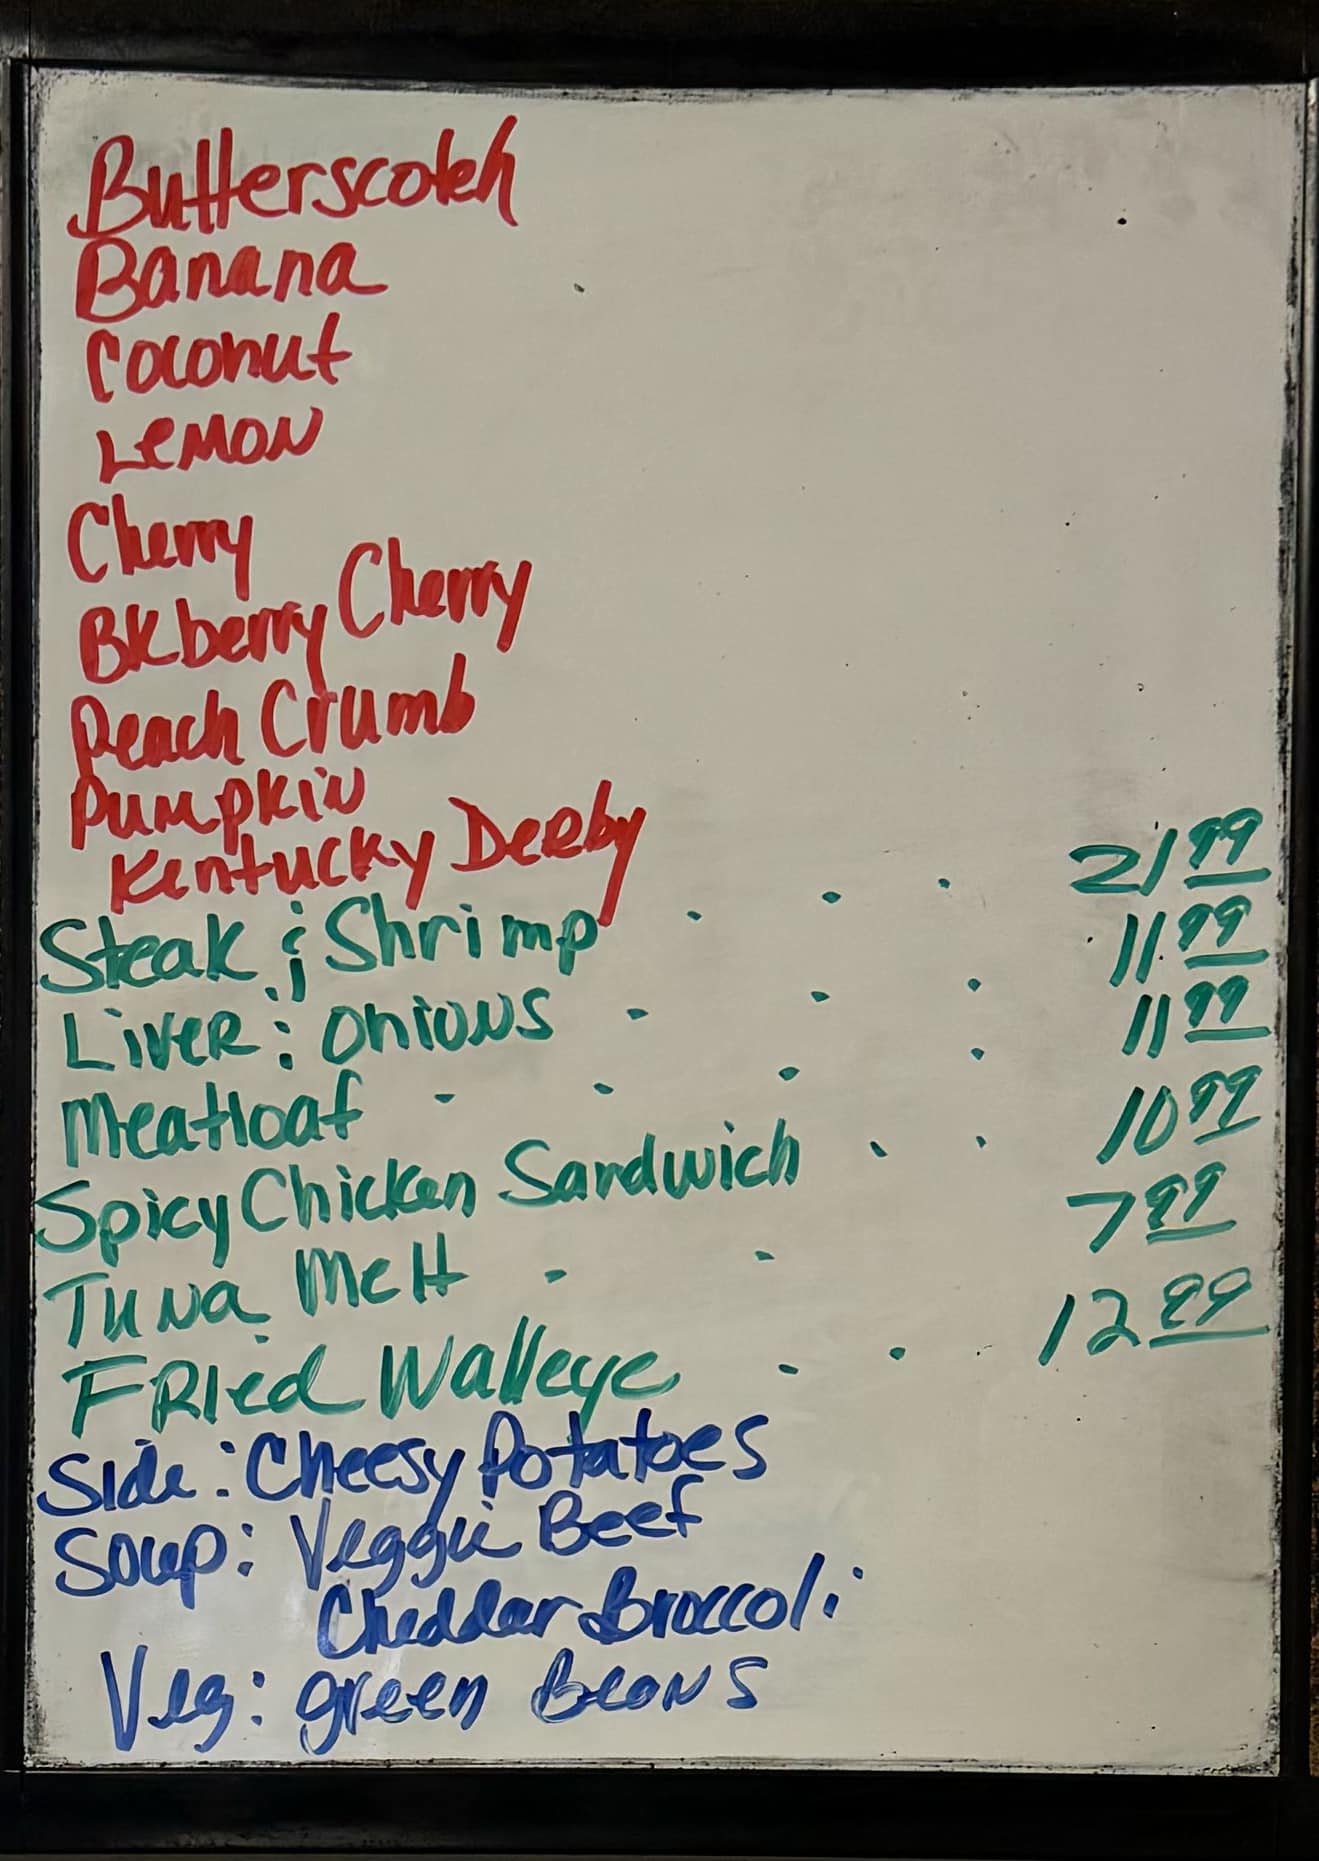 Butterscotch
Banana
Coconut
Lemon
Cherry
Bkberry Cherry
Peach Crumb
Pumpkin
Kentucky Derby
Steak & Shrimp . . . 21.99
Liver & Onions . . . 11.99
Meatloaf . . . . 11.99
Spicy Chicken Sandwich . . 10.99
Tuna Melt . . 7.99
Fried Walleye . . 12.99
Side: Cheesy Potatoes
Soup: Veggie Beef
Cheddar Broccoli
Veg: green Beans